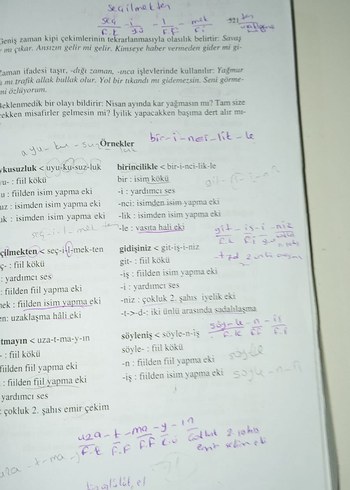 seçilmekten
seç i l mek
F.K yd F.F
Geniş zaman kipi çekimlerinin tekrarlanmasıyla olasılık belirtir: Savaş
mı çıkar. Ansızın gelir mi gelir. Kimseye haber vermeden gider mi gi-
Zaman ifadesi taşır, -dığı zaman, -ınca işlevlerinde kullanılır: Yağmur
mı trafik allak bullak olur. Yol bir tıkandı mı gidemezsin. Seni görme-
mi özlüyorum.
Beklenmedik bir olayı bildirir: Nisan ayında kar yağmasın mı? Tam size
rekken misafirler gelmesin mi? İyilik yapacakken başıma dert alır mı-
bir-i-nci-lik-le
Örnekler
uykusuzluk < uyu-ku-suz-luk
u- : fiil kökü
u : fiilden isim yapma eki
uz : isimden isim yapma eki
uk : isimden isim yapma eki
seçilmekten < seç-i-l-mek-ten
ç- : fiil kökü
: yardımcı ses
: fiilden fiil yapma eki
mek : fiilden isim yapma eki
en: uzaklaşma hâli eki
tmayın < uza-t-ma-y-ın
- : fiil kökü
fiilden fiil yapma eki
: fiilden fiil yapma eki
yardımcı ses
: çokluk 2. şahıs emir çekim
birincilikle < bir-i-nci-lik-le
bir : isim kökü
-i : yardımcı ses
-nci: isimden isim yapma eki
-lik : isimden isim yapma eki
-le : vasıta hali eki
gidişiniz < git-iş-i-niz
git- : fiil kökü
-iş : fiilden isim yapma eki
-i : yardımcı ses
-niz : çokluk 2. şahıs iyelik eki
-t->-d-: iki ünlü arasında sadalılaşma
söyleniş < söyle-n-iş
söyle- : fiil kökü
-n : fiilden fiil yapma eki
-iş : fiilden isim yapma eki
git - iş - i - niz
söy-le-n-iş
uza-t-ma-y-ın
F.K F.F F.F çokluk 2. şahıs